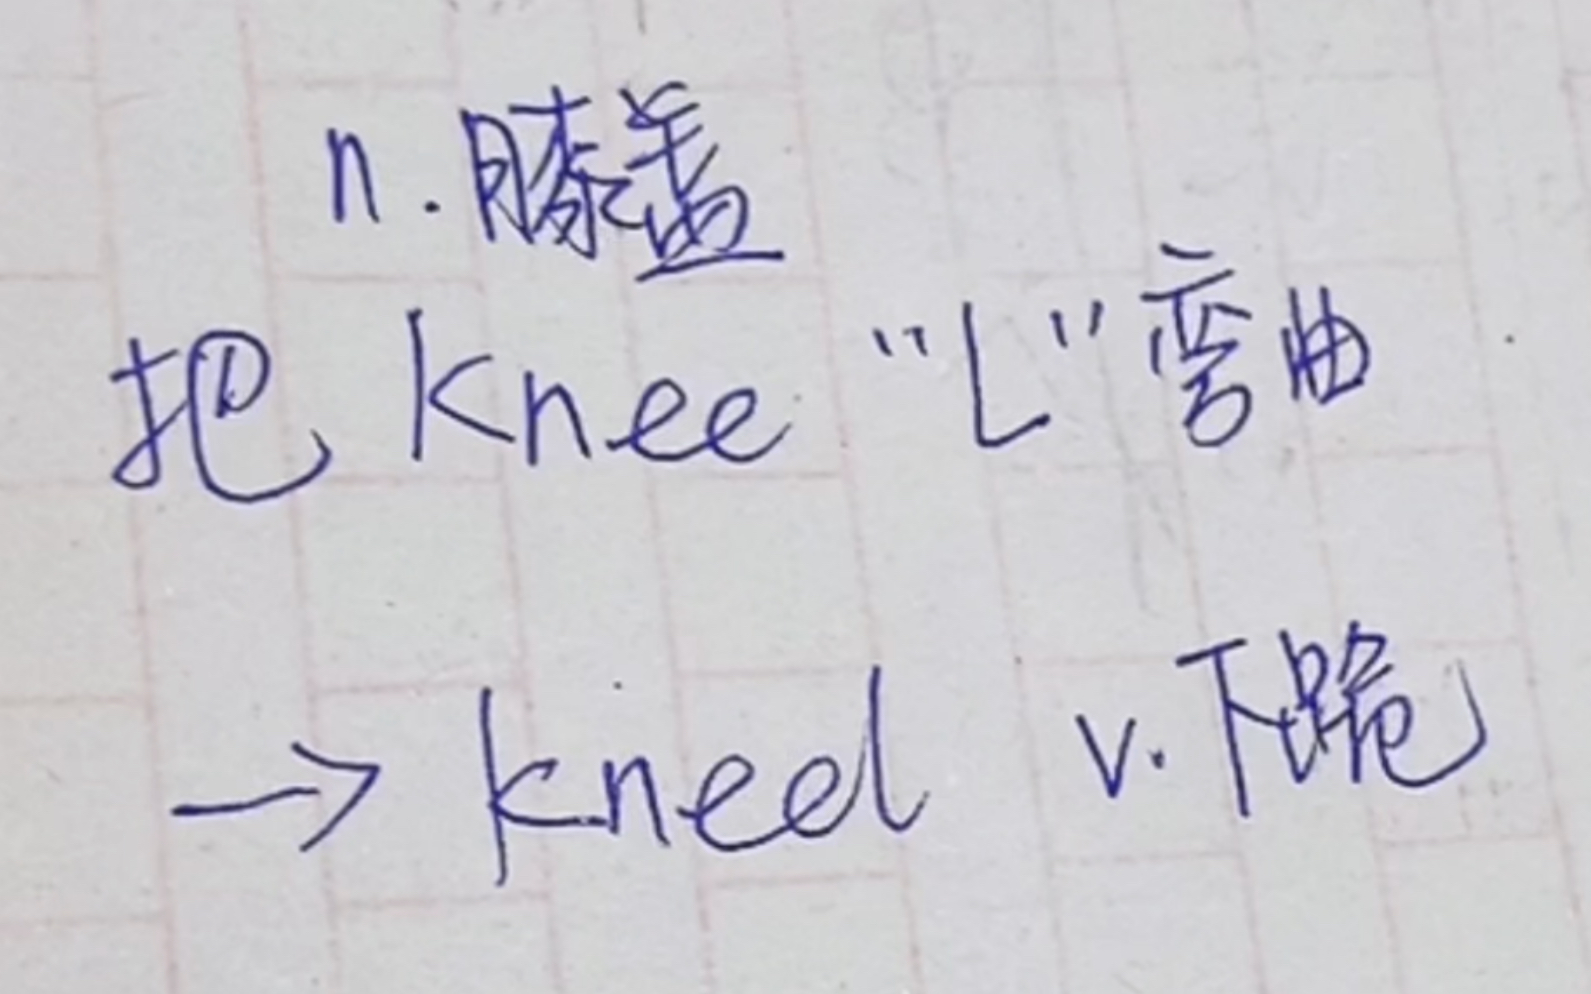 n.膝盖
把 knee “L”弯曲
→ kneel v.下跪